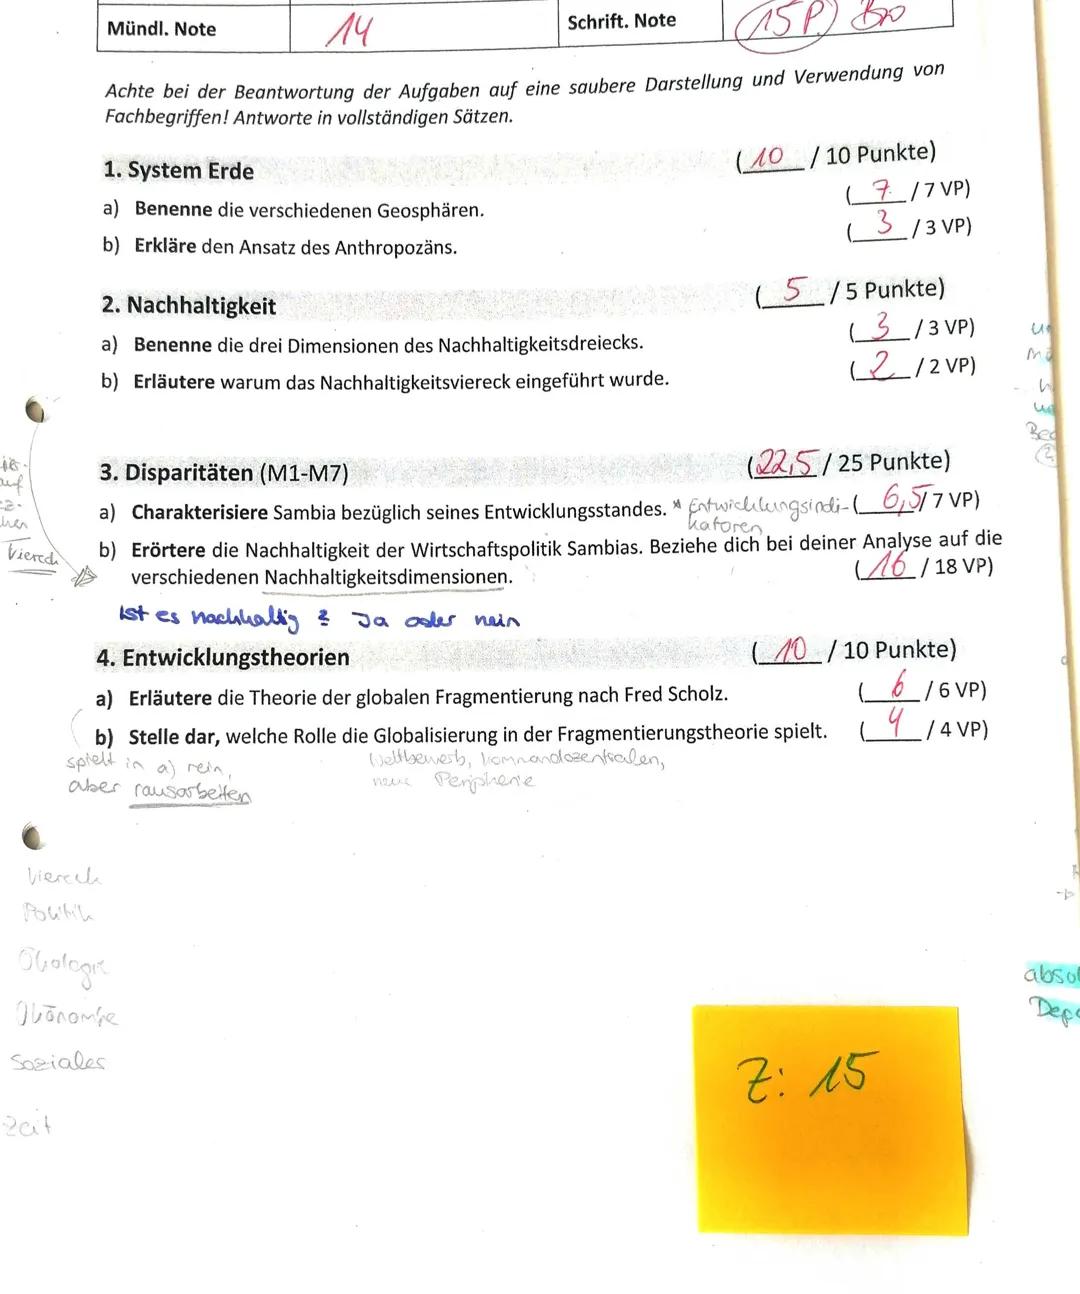 Mündl. Note 14 Schrift. Note 15 P.
Achte bei der Beantwortung der Aufgaben auf eine saubere Darstellung und Verwendung von
Fachbegriffen! Antworte in vollständigen Sätzen.
1. System Erde (10 / 10 Punkte)
(7 / 7 VP)
a) Benenne die verschiedenen Geosphären.
(3 / 3 VP)
b) Erkläre den Ansatz des Anthropozäns.
2. Nachhaltigkeit (5 / 5 Punkte)
(3 / 3 VP)
a) Benenne die drei Dimensionen des Nachhaltigkeitsdreiecks.
(2 / 2 VP)
b) Erläutere warum das Nachhaltigkeitsviereck eingeführt wurde.
3. Disparitäten (M1-M7) (22,5 / 25 Punkte)
a) Charakterisiere Sambia bezüglich seines Entwicklungsstandes. * Entwicklungsindi- (6,5 / 7 VP)
katoren
b) Erörtere die Nachhaltigkeit der Wirtschaftspolitik Sambias. Beziehe dich bei deiner Analyse auf die
verschiedenen Nachhaltigkeitsdimensionen. (16 / 18 VP)
Viereck
Ist es nachhaltig ? Ja oder nein
4. Entwicklungstheorien (10 / 10 Punkte)
a) Erläutere die Theorie der globalen Fragmentierung nach Fred Scholz. (6 / 6 VP)
b) Stelle dar, welche Rolle die Globalisierung in der Fragmentierungstheorie spielt. (4 / 4 VP)
spielt in a) rein,
aber rausarbeiten
Wettbewerb, Kommandozentralen,
neue Peripherie
Viereck
Politik
Ökologie
Ökonomie
Soziales
Zeit
Z: 15